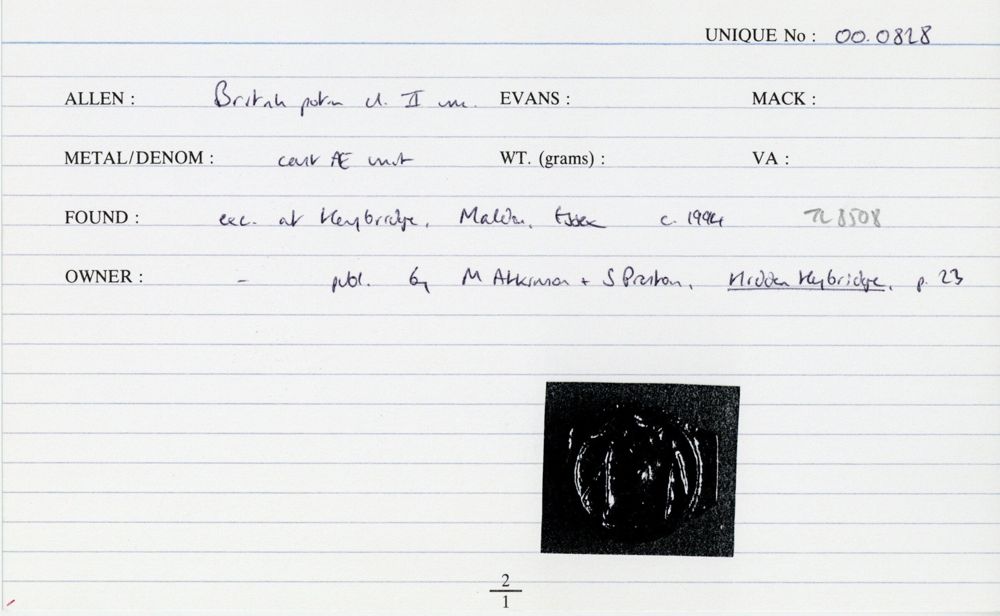 UNIQUE No : 00.0828
ALLEN : British potin cl. II unc. EVANS : MACK :
METAL/DENOM : cast Æ unit WT. (grams) : VA :
FOUND : exc. at Heybridge, Maldon, Essex c. 1994 TL 8508
OWNER : – publ. by M Atkinson + S Preston, Hidden Heybridge, p. 23
2
1